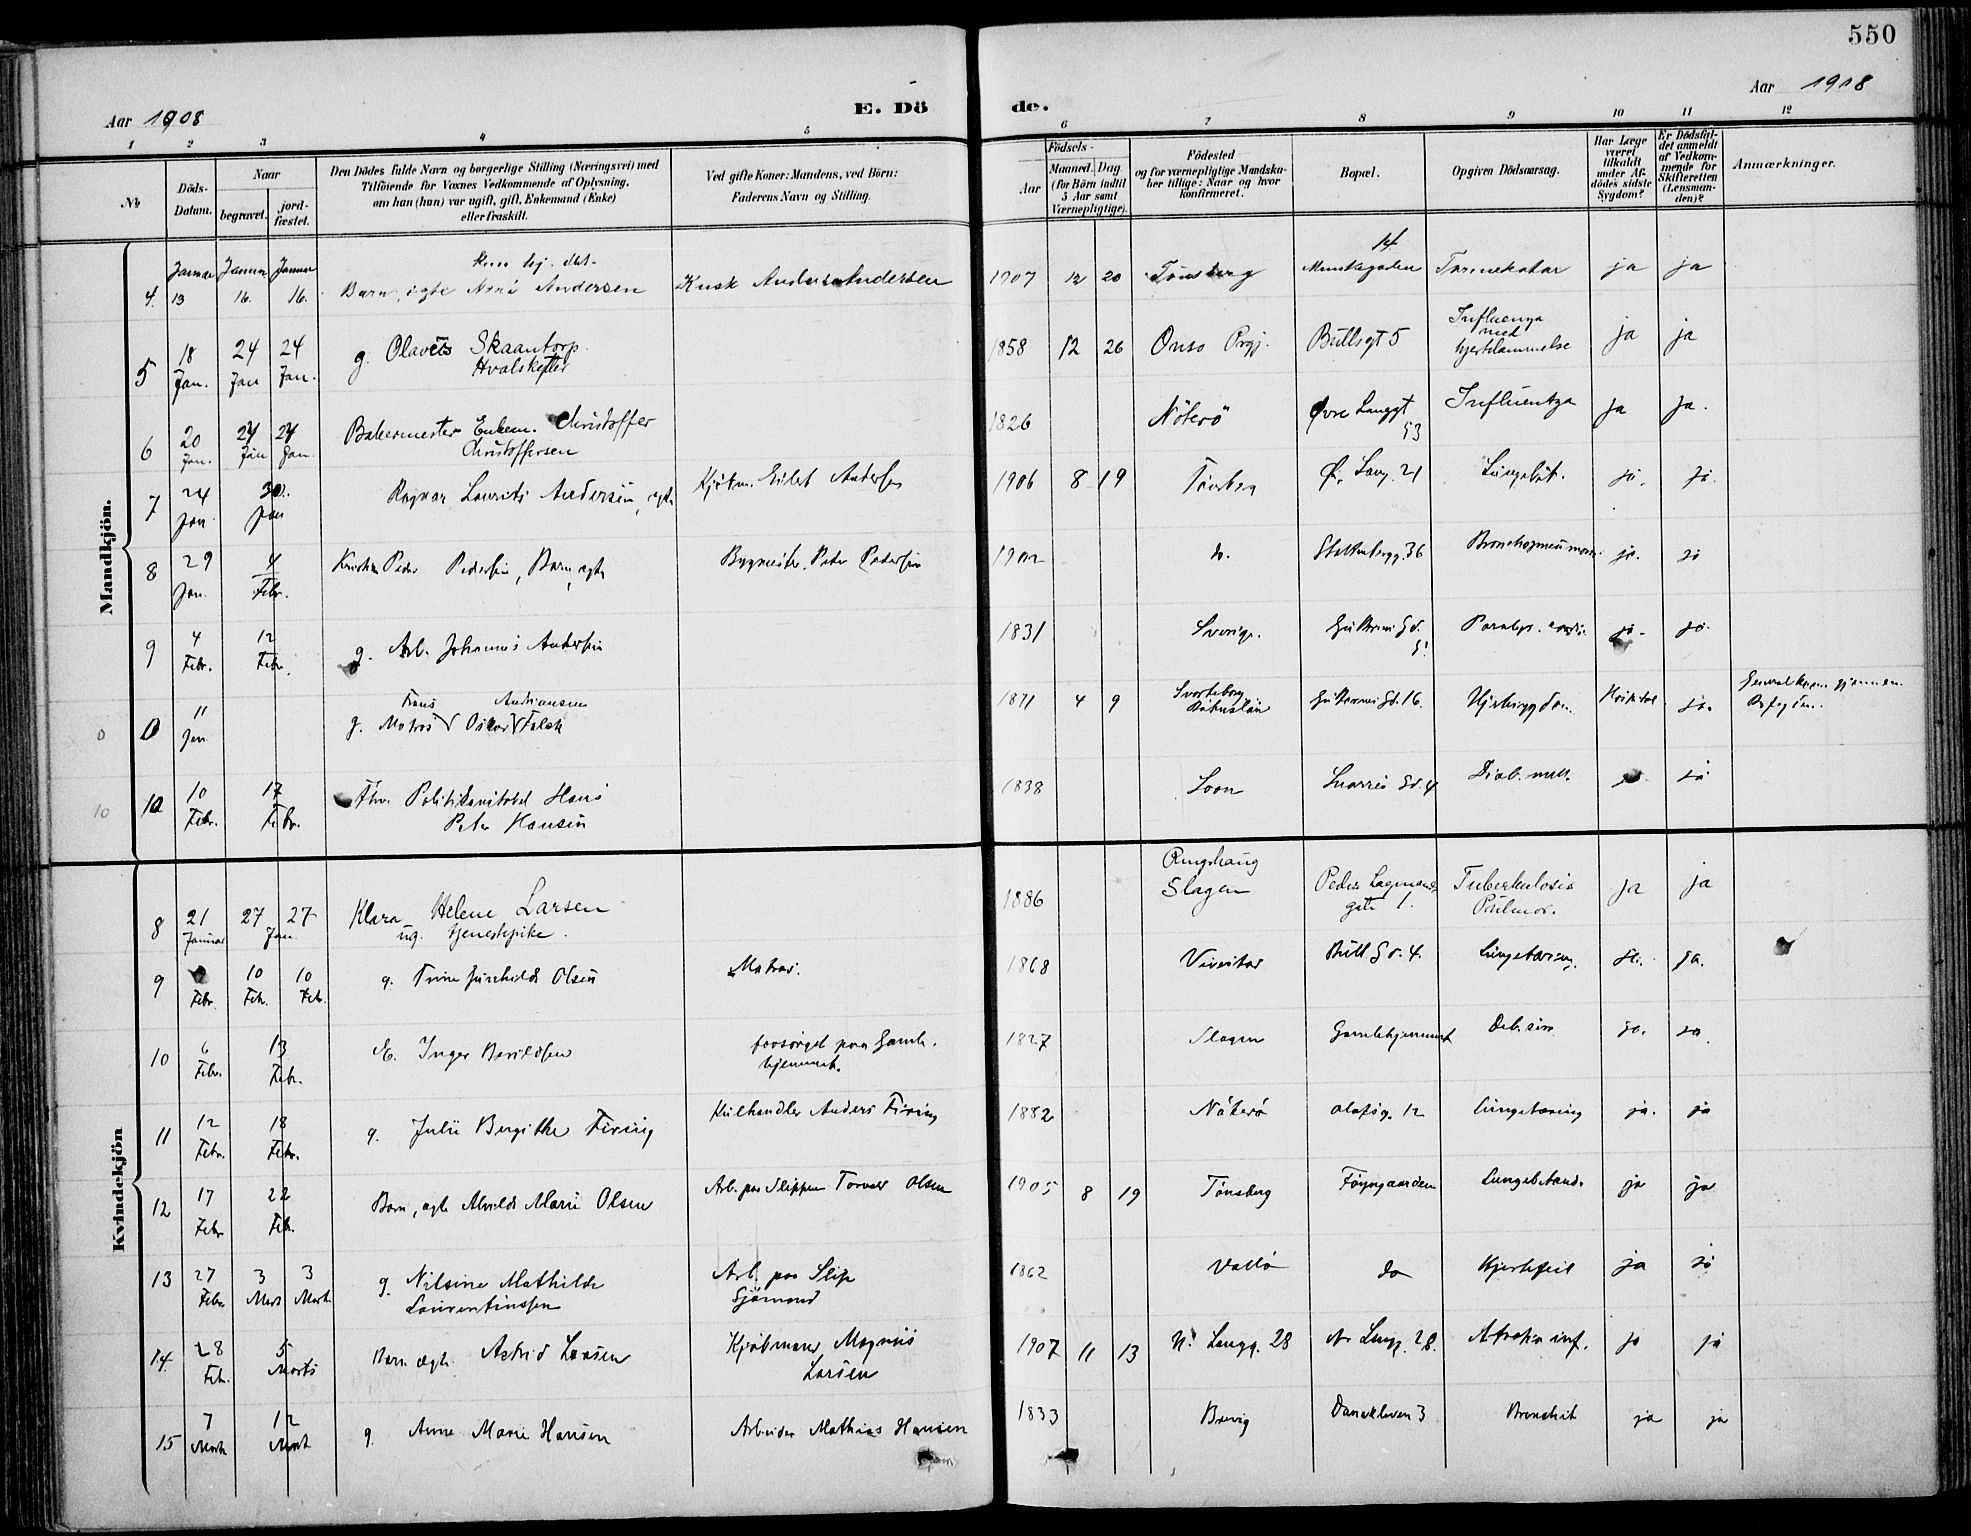 550
Aar 1908
E. Dö
de.
Aar 1908
1 2 3 4 5 6 7 8 9 10 11 12
No
Döds-Datum.
Naar
begravet.
jord-fæstet.
Den Dödes fulde Navn og borgerlige Stilling (Næringsvei) med
Tilföiende for Voxnes Vedkommende af Oplysning,
om han (hun) var ugift, gift, Enkemand (Enke)
eller fraskilt.
Ved gifte Koner: Mandens, ved Börn:
Faderens Navn og Stilling.
Födsels-
Aar
Maaned. Dag.
(for Börn indtil
5 Aar samt
Værnepligtige).
Födested
og for værnepligtige Mandska-
ber tillige: Naar og hvor
konfirmeret.
Bopæl.
Opgiven Dödsaarsag.
Har Læge
været
tilkaldt
under Af-
dödes sidste
Sygdom?
Er Dödsfal-
det anmeldt
af Vedkom-
mende for
Skifteretten
(Lensman-
den)?
Anmærkninger.
Mandkjön.
4. 13 Januar 16. Januar 16. Januar Barn, ægte Andersen Kusk Anders Andersen 1907 12 20 Tönsberg Munkegaden 14 Tarmekatar ja ja
5 18 Jan. 24 Jan 24 Jan. g. Olaves Skaantorp
Hvalskytter 1858 12 26 Onsö Prgj. Bullsgt 5 Influenza
med
hjertelammelse ja ja
6 20 Jan. 24 Jan 24 Jan. Bakermester Enkem. Christoffer
Christoffersen 1826 Nöterö Övre Langgt
53 Influentza ja ja.
7 24 Jan. 30. Jan Ragnar Laurits Andersen, ægte Kjöbm. Eilert Andersen 1906 8 19 Tönsberg Ö. Lang. 21 Lungebet. ja. ja.
8 29 Jan. 4 Febr. Kristian Peder Pedersen, Barn, ægte Bygmester Peder Pedersen 1902 do. 36 Bronchopneumoni ja. ja
9 4 Febr. 12 Febr. g. Arb. Johannes Andersen 1831 Sverige. ja. ja.
0 0 11 Jan g. Matros Frans Oskar Andriansen Falck 1871 4 9 Svarteborg
Bohuslän 16. Hospital ja.
10 10 10 Febr. 17 Febr. Fhv. Politikonstabel Hans
Peter Hansen 1838 Soon Snorres Gd. 4 Diab. mell. ja
Kvindekjön
8 21 Januar 27 27 Jan Klara Helene Larsen
ug. tjenestepike. 1886 Ringshaug
Slagen Peder Lagmands
gate 1. Tuberkulosis
Pulmor. ja ja
9 Febr 10 Feb. 10 Feb. g. Trine Gunhilda Olsen Matros. 1868 Bull Gd. 4. Lungetæring. ja. ja.
10 6 Febr. 13 Febr. E. Inger forsörget paa Gamle-
hjemmet. 1827 Slagen Gamlehjemmet ja. ja.
11 12 Febr. 18 Febr. g. Julie Bergithe Firing Kulhandler Anders Firing 1882 Nöterö Olafsg. 12 Lungetæring ja. ja
12 17 Febr 22 Feb. Barn, ægte Alvilde Marie Olsen Arb. paa Slippen Torvald Olsen 1905 8 19 Tönsberg Föyngaarden Lungebetænd. ja ja
13 27 Febr. 3 Mart 3 Mart. g. Nilsine Mathilde
Laurentiussen Arb. paa Slip
Sjömand 1862 Vallö do Hjertefeil ja ja
14. 28 Feb. 5 Marts Barn ægte Astrid Larsen Kjöbmand Magnus
Larsen 1907 11 13 N. Langg. 28 N. Langg. 28. Atrofia inf. ja ja
15 7 Mart 12 Mart g. Anne Marie Hansen Arbeider Mathias Hansen 1833 Brevig Danekleven 3 Bronchit ja ja